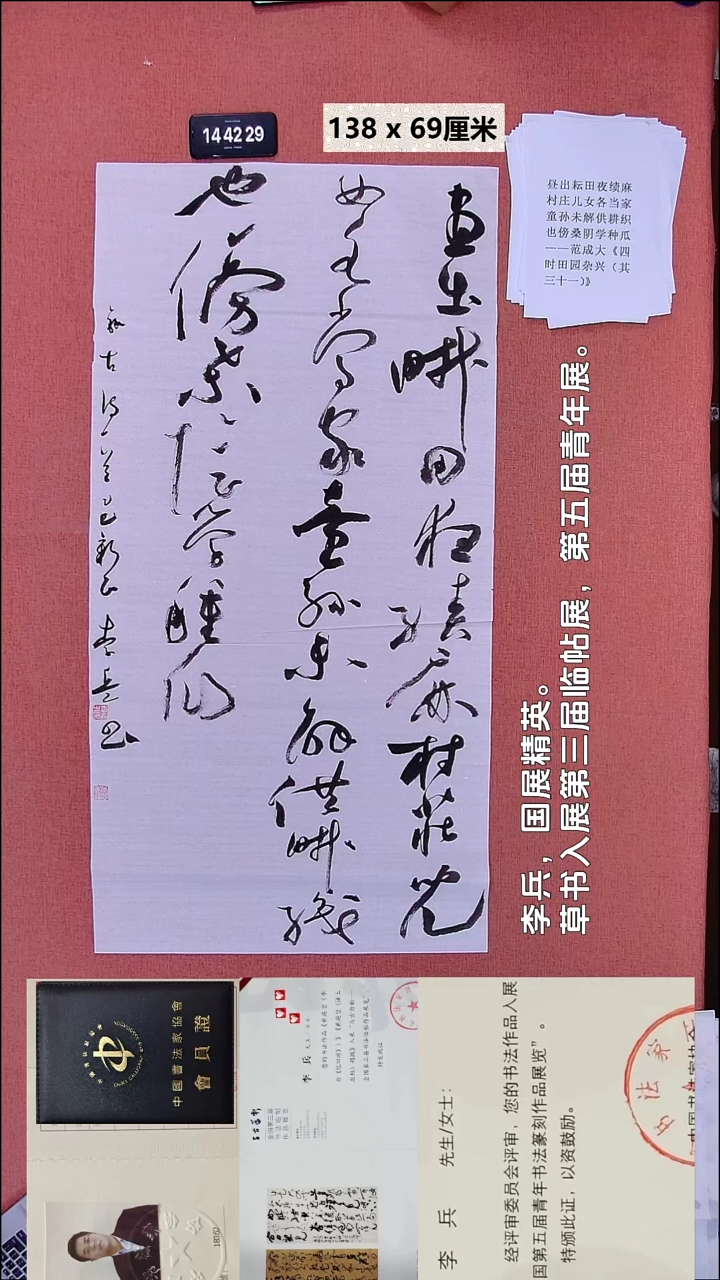 14 42 29
138 x 69厘米
昼出耘田夜绩麻
村庄儿女各当家
童孙未解供耕织
也傍桑阴学种瓜
——范成大《四
时田园杂兴（其
三十一）》
昼出耘田夜绩麻村庄儿
女各当家童孙未解供耕织
也傍桑阴学种瓜
录古诗一首乙巳新正李兵书
李兵，国展精英。
草书入展第三届临帖展，第五届青年展。
中國書法家協會
會員證
李 兵
全国第三届
李 兵 先生/女士：
经评审委员会评审，您的书法作品入展
国第五届青年书法篆刻作品展览”。
特颁此证，以资鼓励。